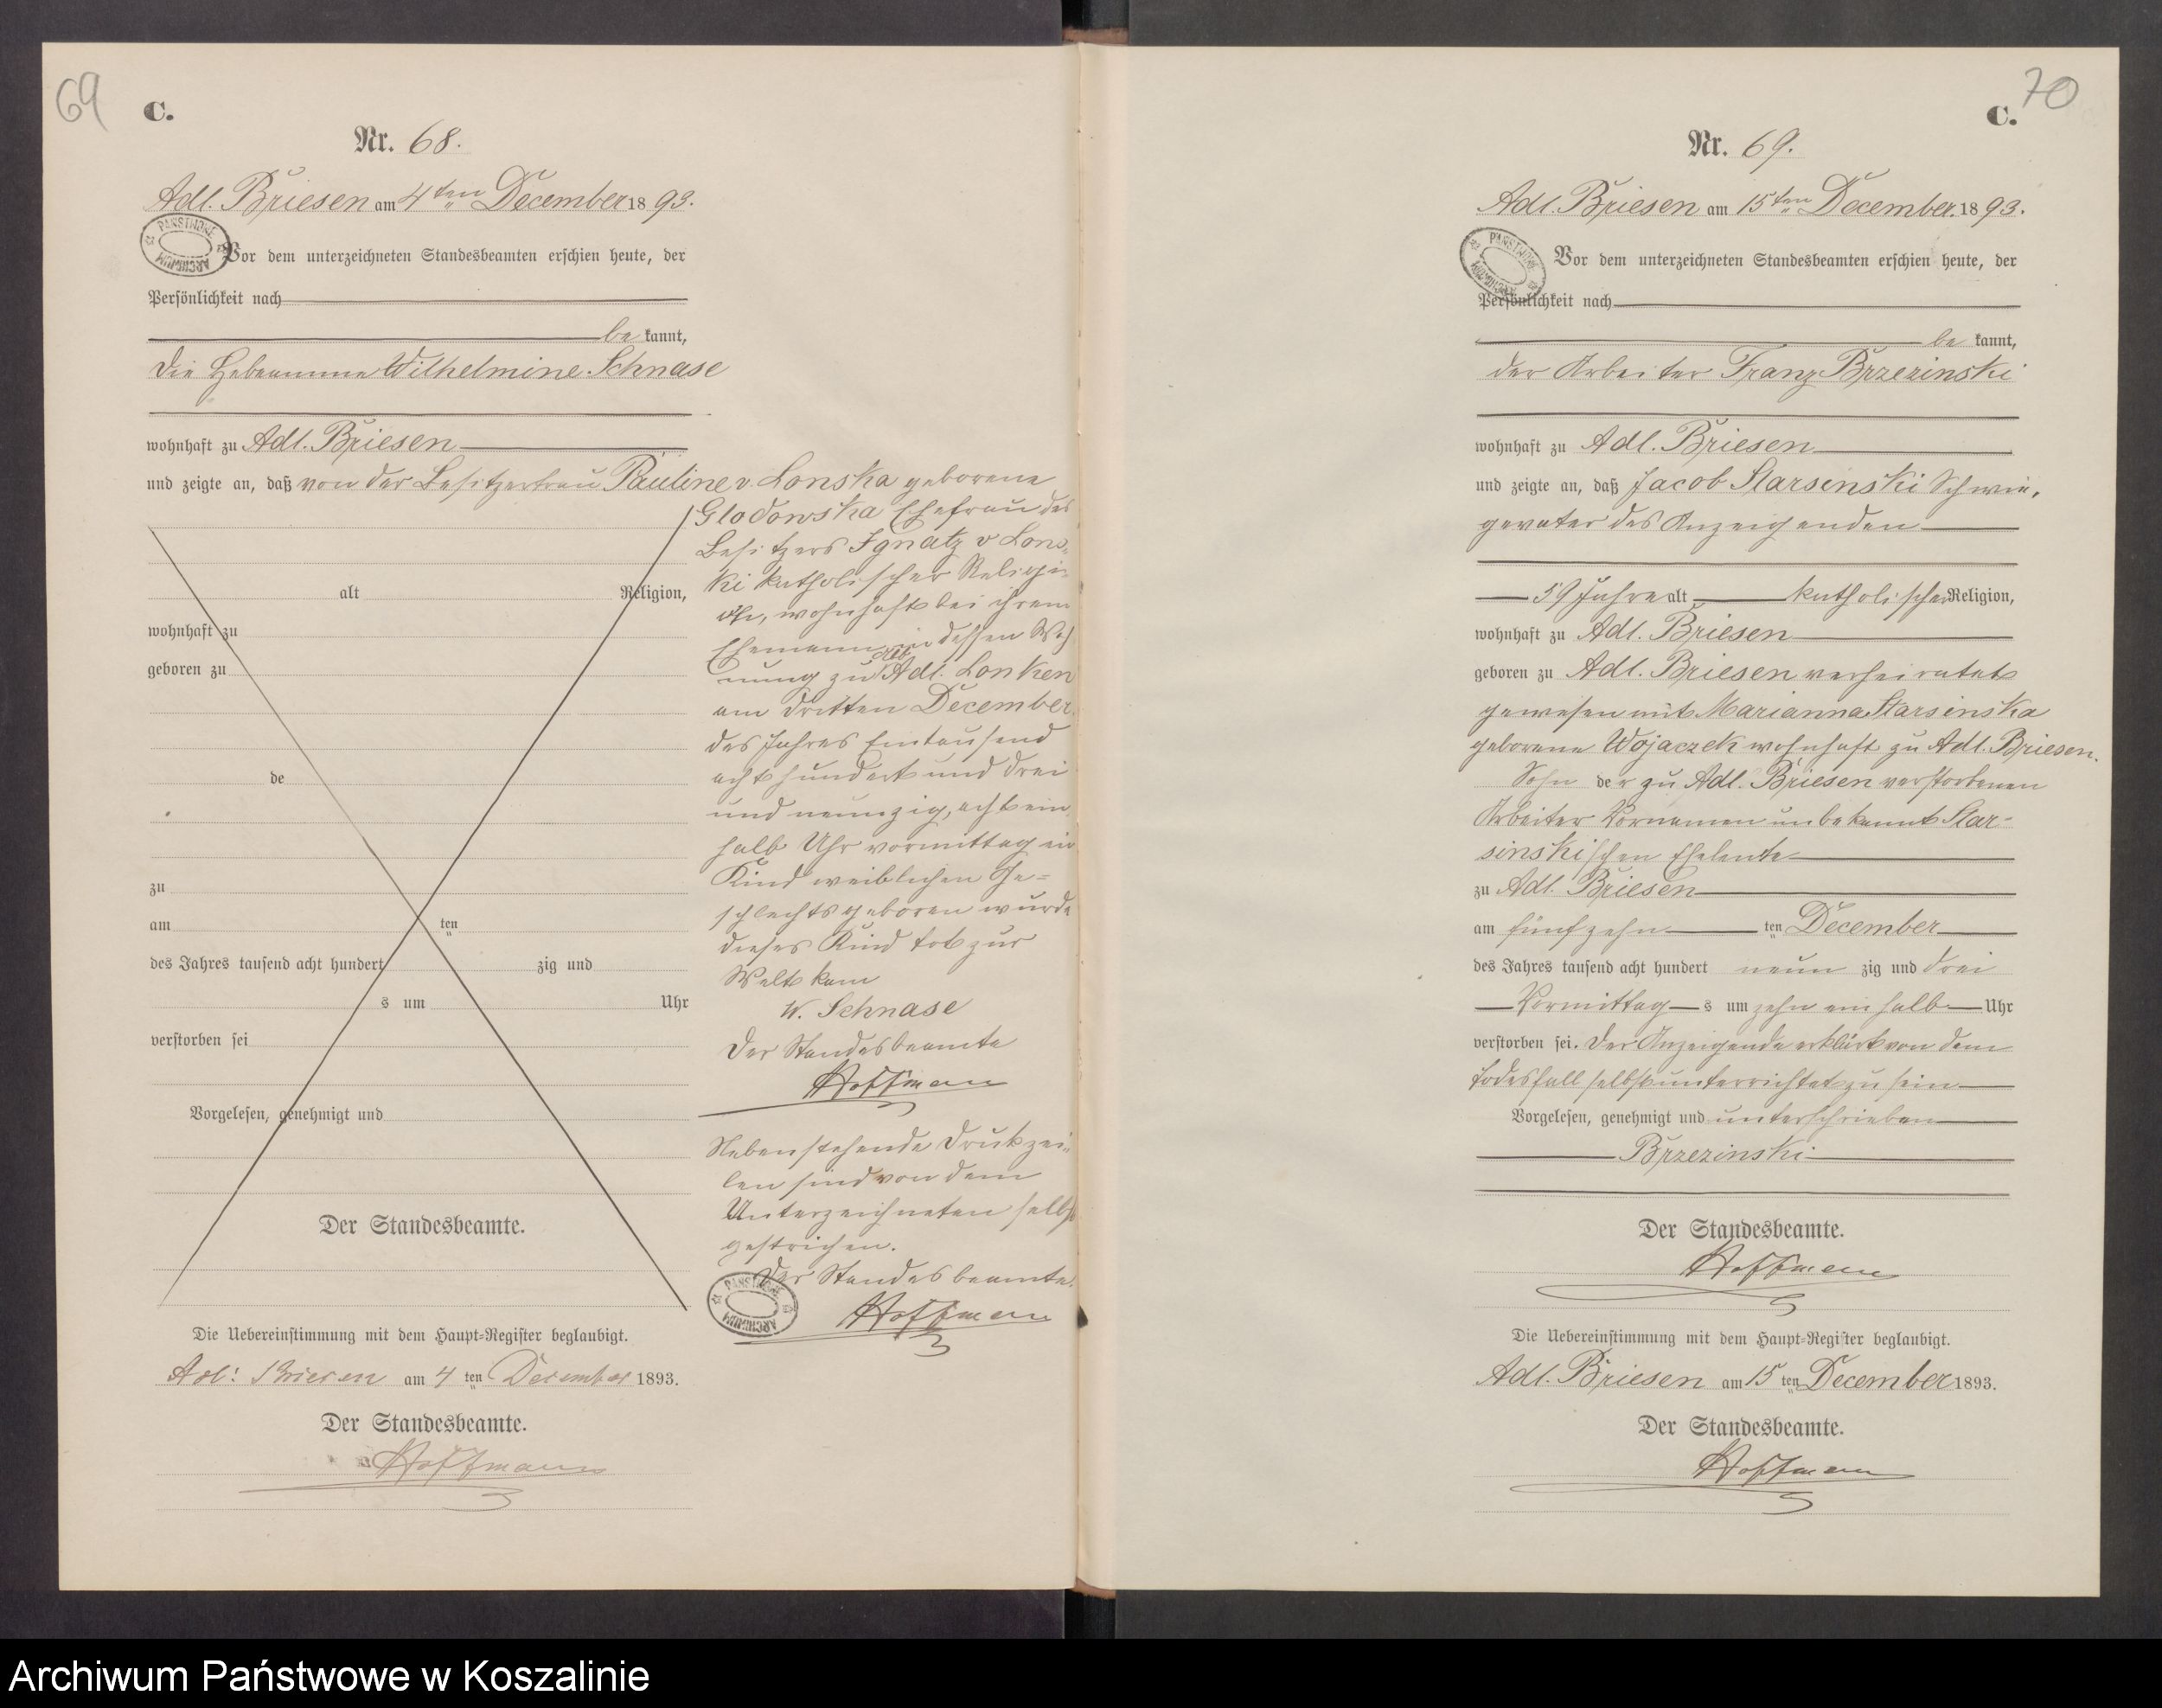 69
C.
Nr. 68.
Adl. Briesen am 4ten December 1893.
PAŃSTWOWE ARCHIWUM
Vor dem unterzeichneten Standesbeamten erschien heute, der
Persönlichkeit nach
be kannt,
die Hebeamme Wilhelmine Schnase
wohnhaft zu Adl. Briesen
und zeigte an, daß von der Besitzerfrau Pauline v. Lonska geborene
Glodowska Ehefrau des
Besitzers Ignatz v Lons-
ki katholischer Religi-
on, wohnhaft bei ihrem
Ehemann in dessen Woh
nung zu Adl. Lonken
am dritten December
des Jahres Eintausend
acht hundert und drei
und neunzig, acht ein
halb Uhr vormittag ein
Kind weiblichen Ge=
schlechts geboren wurde
dieses Kind tot zur
Welt kam
W. Schnase
Der Standesbeamte
Hoffmann
Nebenstehende Druckzei-
len sind von dem
Unterzeichneten selbst
gestrichen.
Der Standesbeamte.
Hoffmann
PAŃSTWOWE ARCHIWUM
alt Religion,
wohnhaft zu
geboren zu
de
zu
am ten
des Jahres tausend acht hundert zig und
s um Uhr
verstorben sei
Vorgelesen, genehmigt und
Der Standesbeamte.
Die Uebereinstimmung mit dem Haupt-Register beglaubigt.
Adl: Briesen am 4 ten December 1893.
Der Standesbeamte.
Hoffmann
70
C.
Nr. 69.
Adl. Briesen am 15ten December 1893.
PAŃSTWOWE ARCHIWUM
Vor dem unterzeichneten Standesbeamten erschien heute, der
Persönlichkeit nach
be kannt,
der Arbeiter Franz Brzezinski
wohnhaft zu Adl. Briesen
und zeigte an, daß Jacob Starsinski Schwie,
gervater des Anzeigenden
59 Jahre alt katholischer Religion,
wohnhaft zu Adl. Briesen
geboren zu Adl. Briesen verheiratet
gewesen mit Marianna Starsinska
geborene Wojaczek wohnhaft zu Adl. Briesen.
Sohn der zu Adl. Briesen verstorbenen
Arbeiter Vornamen unbekannt Star-
sinskischen Eheleute
zu Adl. Briesen
am fünfzehn ten December
des Jahres tausend acht hundert neun zig und drei
Vormittag s um zehn ein halb Uhr
verstorben sei. Der Anzeigende erklärt von dem
Todesfall selbst unterrichtet zu sein
Vorgelesen, genehmigt und unterschrieben
Brzezinski
Der Standesbeamte.
Hoffmann
Die Uebereinstimmung mit dem Haupt-Register beglaubigt.
Adl. Briesen am 15 ten December 1893.
Der Standesbeamte.
Hoffmann
Archiwum Państwowe w Koszalinie